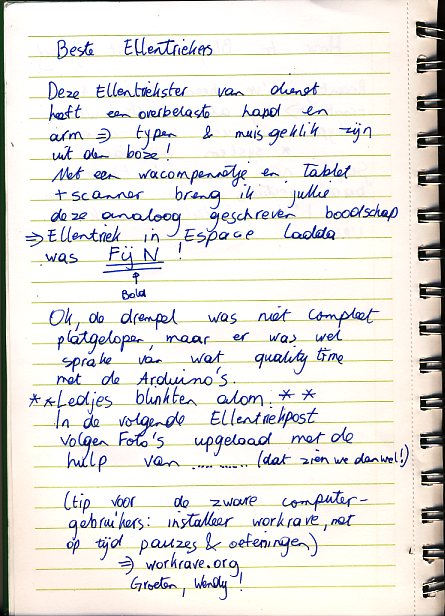 Beste Ellentriekers
Deze Ellentriekster van dienst
heeft een overbelaste hand en
arm => typen & muisgeklik zijn
uit den boze!
Met een wacompennetje en tablet
+ scanner breng ik jullie
deze analoog geschreven boodschap
=> Ellentriek in Espace Ladda
was FijN !
Bold
Ok, de drempel was niet compleet
platgelopen, maar er was wel
sprake van wat quality time
met de Arduino's.
** Ledjes blinkten alom. **
In de volgende Ellentriekpost
volgen Foto's upgeload met de
hulp van ........... (dat zien we dan wel!)
(tip voor de zware computer-
gebruikers: installeer workrave, met
op tijd pauzes & oefeningen)
=> workrave.org
Groeten, Wendy!